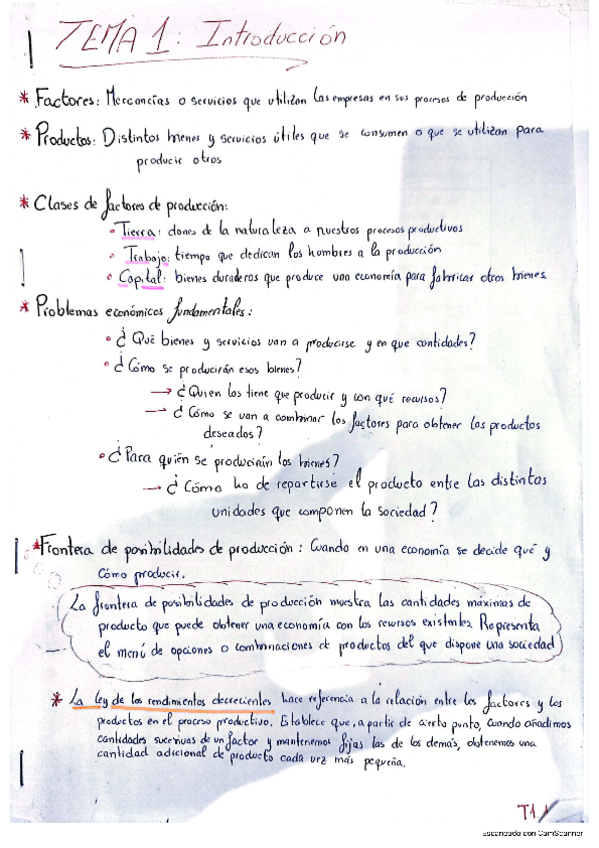 TEMA 1: Introducción
* Factores: Mercancías o servicios que utilizan las empresas en sus procesos de producción
* Productos: Distintos bienes y servicios útiles que se consumen o que se utilizan para
producir otros
* Clases de factores de producción:
• Tierra: dones de la naturaleza a nuestros procesos productivos
• Trabajo: tiempo que dedican los hombres a la producción
• Capital: bienes duraderos que produce una economía para fabricar otros bienes.
* Problemas económicos fundamentales:
• ¿Qué bienes y servicios van a producirse y en que cantidades?
• ¿Cómo se producirán esos bienes?
→ ¿Quien los tiene que producir y con qué recursos?
→ ¿Cómo se van a combinar los factores para obtener los productos
deseados?
• ¿Para quién se produciráin los bienes?
→ ¿Cómo ha de repartirse el producto entre las distintas
unidades que componen la sociedad?
* Frontera de posibilidades de producción: Cuando en una economía se decide qué y
cómo producir.
La frontera de posibilidades de producción muestra las cantidades máximas de
producto que puede obtener una economía con los recursos existentes. Representa
el menú de opciones o combinaciones de productos del que dispone una sociedad
* La ley de los rendimientos decrecientes hace referencia a la relación entre los factores y los
productos en el proceso productivo. Establece que, a partir de cierto punto, cuando añadimos
cantidades sucesivas de un factor y mantenemos fijas las de los demás, obtenemos una
cantidad adicional de producto cada vez más pequeña.
T1.1
Escaneado con CamScanner